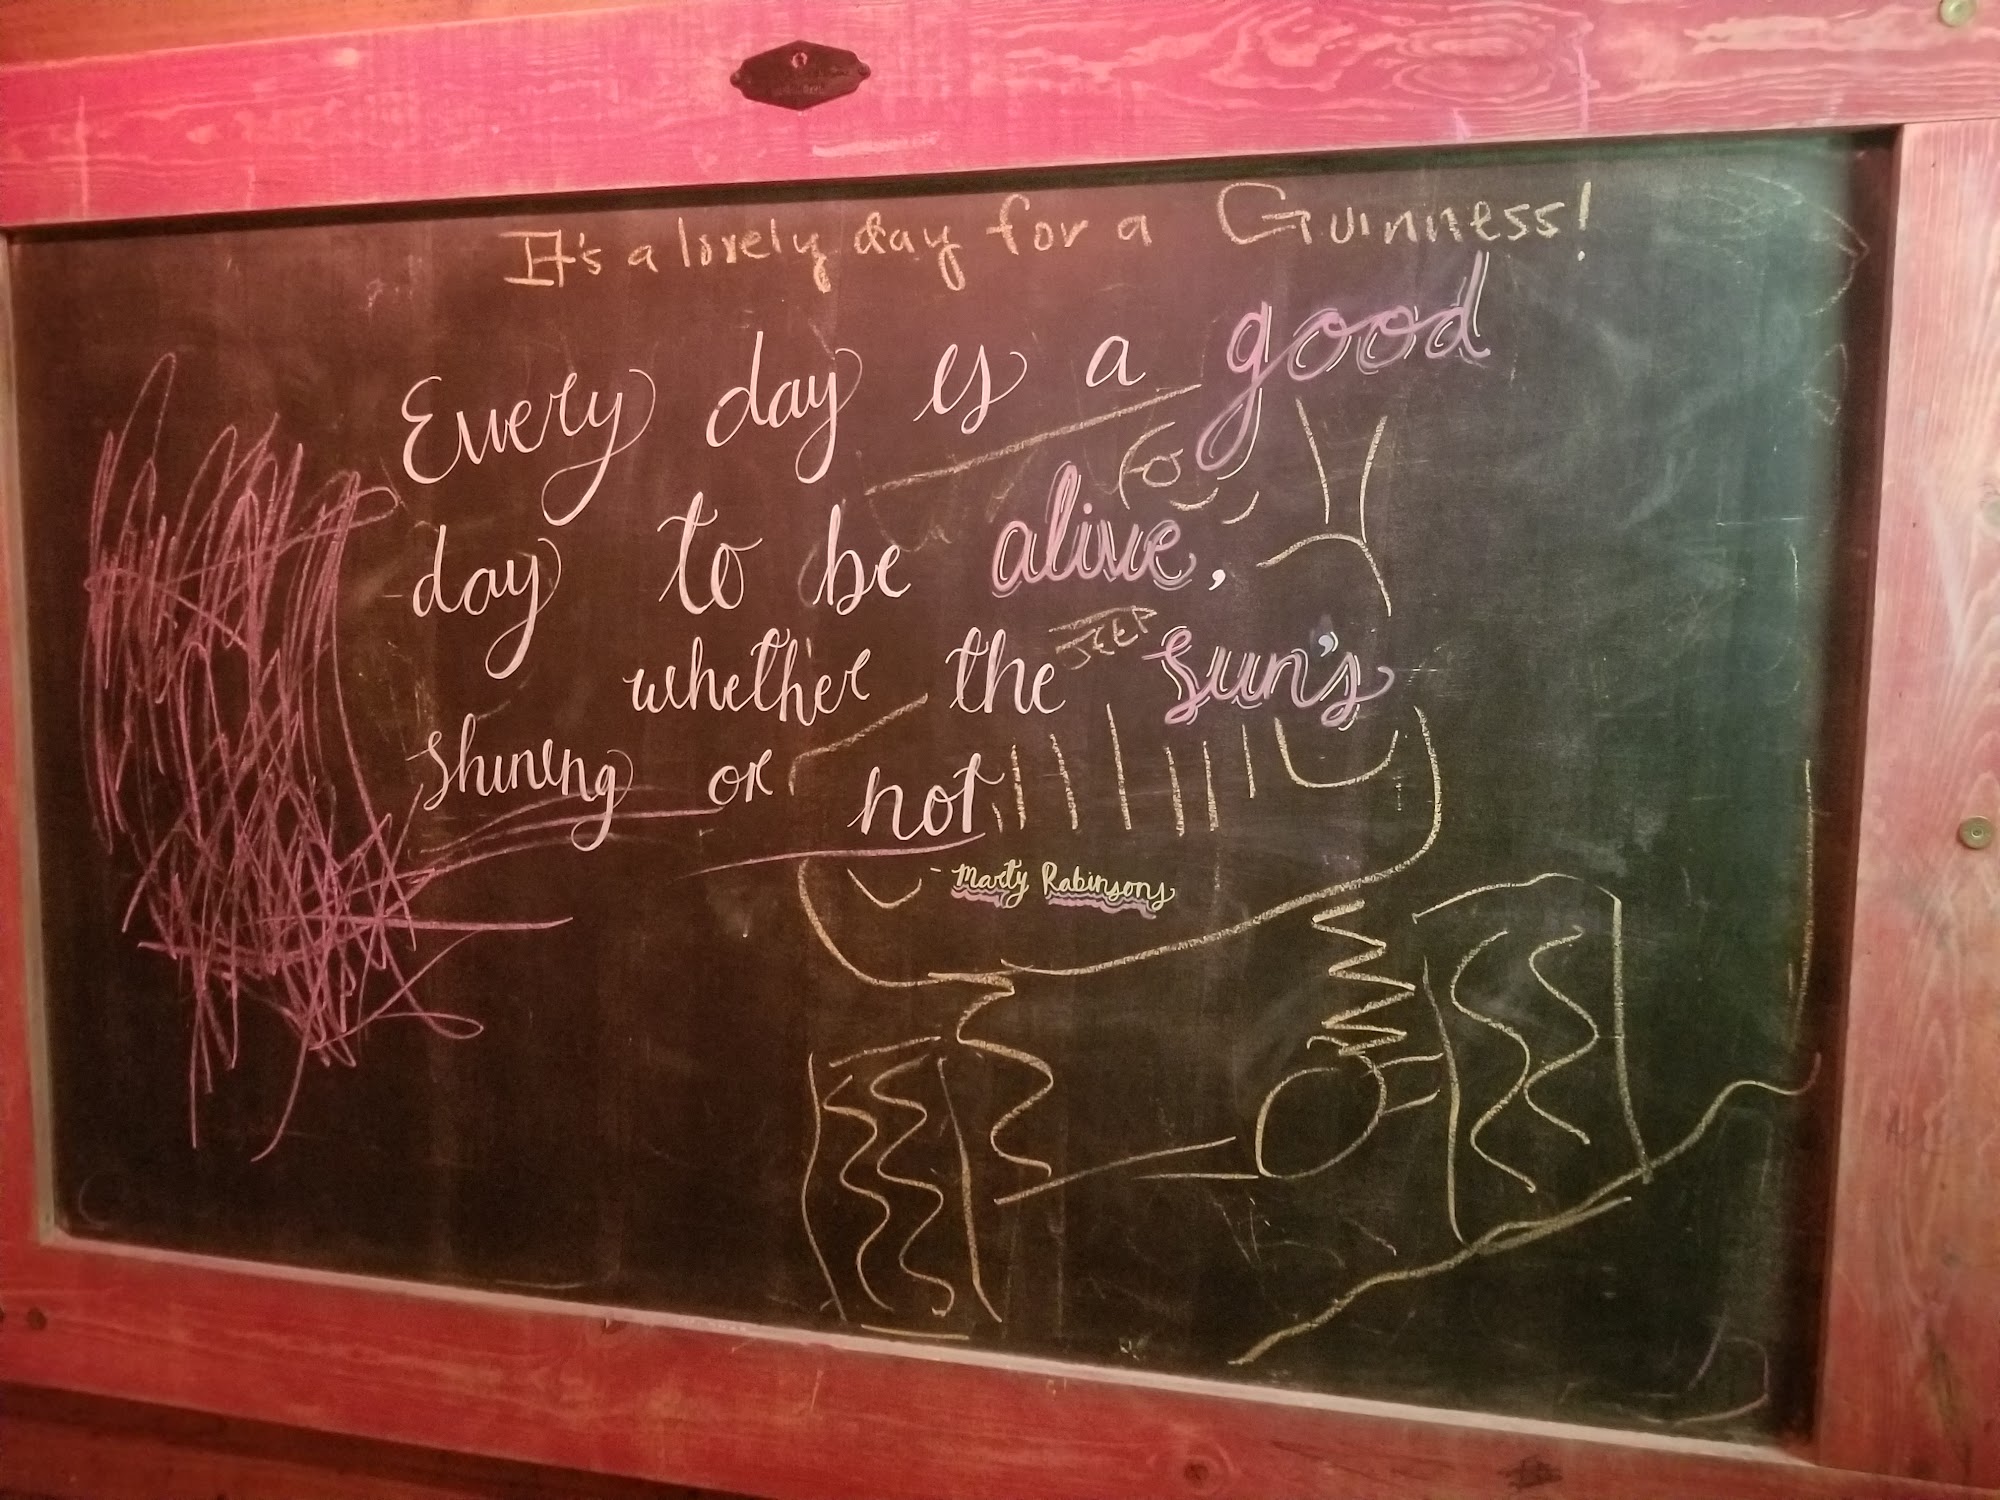 It's a lovely day for a Guinness!
Every day is a good
day to be alive,
whether the sun's
JEEP
shining or not
- Marty Rabinsons